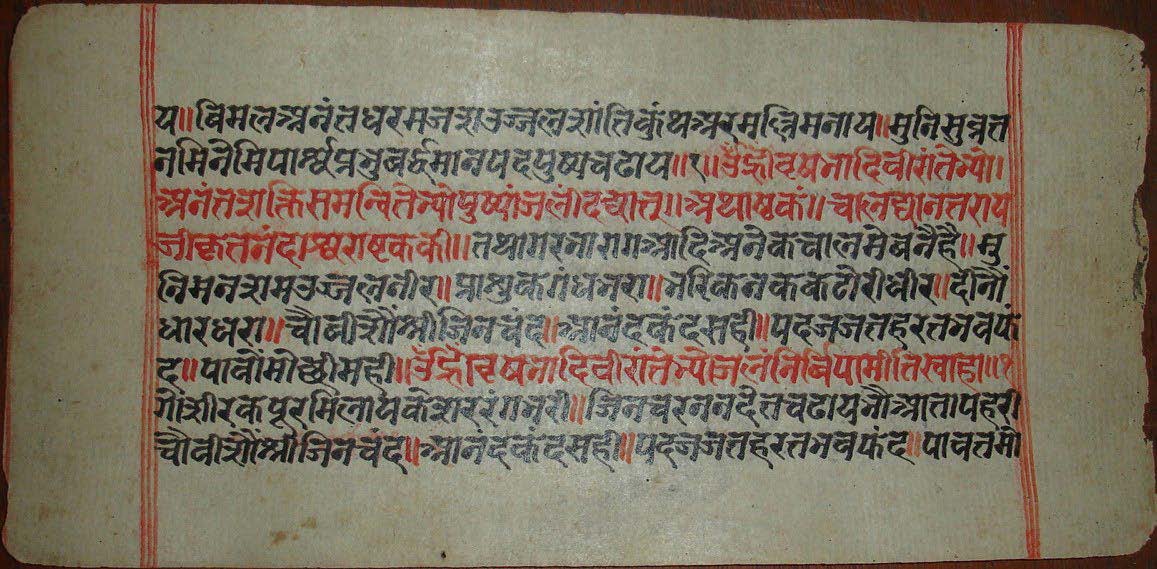 य॥ विमलअनंतधरमजशउज्जलशांतिकुंथअरमल्लिमनाय॥ मुनिसुव्रत
नमिनेमिपार्श्वप्रभुवर्द्धमानपदपुष्पचढाय॥१॥ उँह्रीवृषभादिवीरांतेभ्यो।
अनंतशक्तिसमन्वितेभ्योपुष्पांजलीं॥ अथाष्टकं॥
जीकृतनंदीश्वराष्टककी॥ तथागरवारागआदिअनेकचालमेंबनैहै॥ मु
निमनशमउज्जलनीर॥ प्राशुकगंधभरा॥ भरिकनककटोरीधीर॥ देनौं
धारधरा॥ चौवीशौंश्रीजिनचंद॥ आनंदकंदसही॥ पदजजतहरतभवफं
द॥ पावौमोछीमही॥ उँह्रीवृषभादिवीरांतेभ्योजलंनिर्विपामीतिस्वाहा॥१
गोशीरकपूरमिलायकेशररंगभरी॥ जिनचरननदेतचढायभौआतापहरी
चौवीशौंश्रीजिनचंद॥ आनदकंदसही॥ पदजजतहरतभवफंद॥ पावतमो